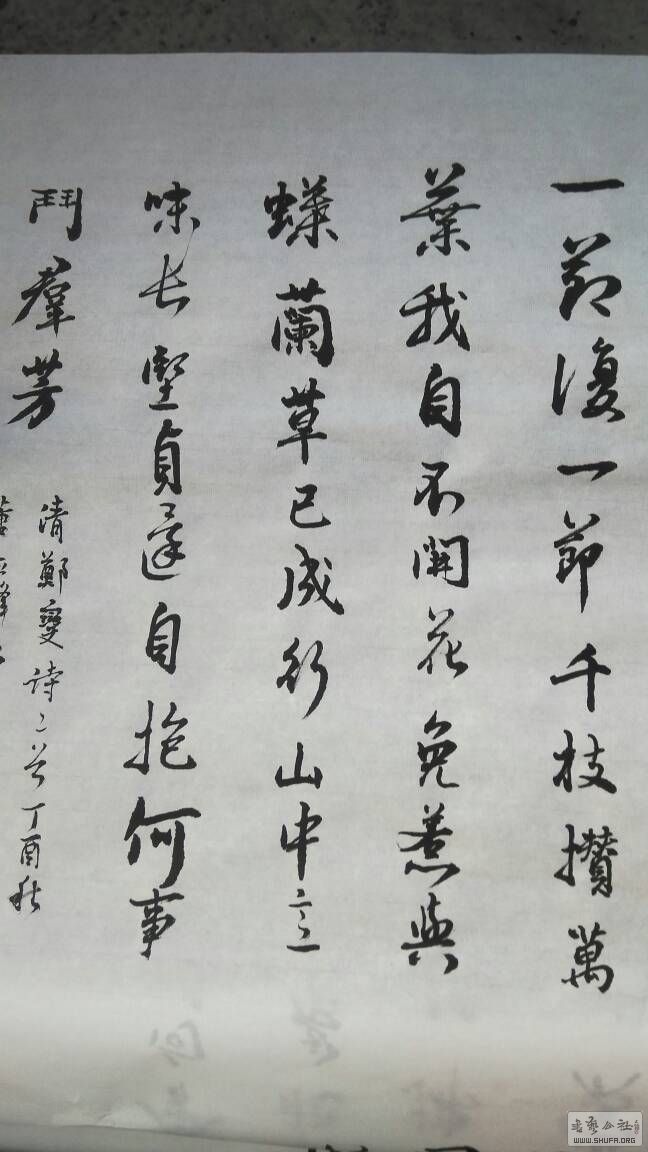 一節復一節千枝攢萬
葉我自不開花免惹與
蝶蘭草已成行山中意
味长堅貞還自抱何事
鬥羣芳
清鄭燮詩二首丁酉秋
書藝公社
WWW.SHUFA.ORG